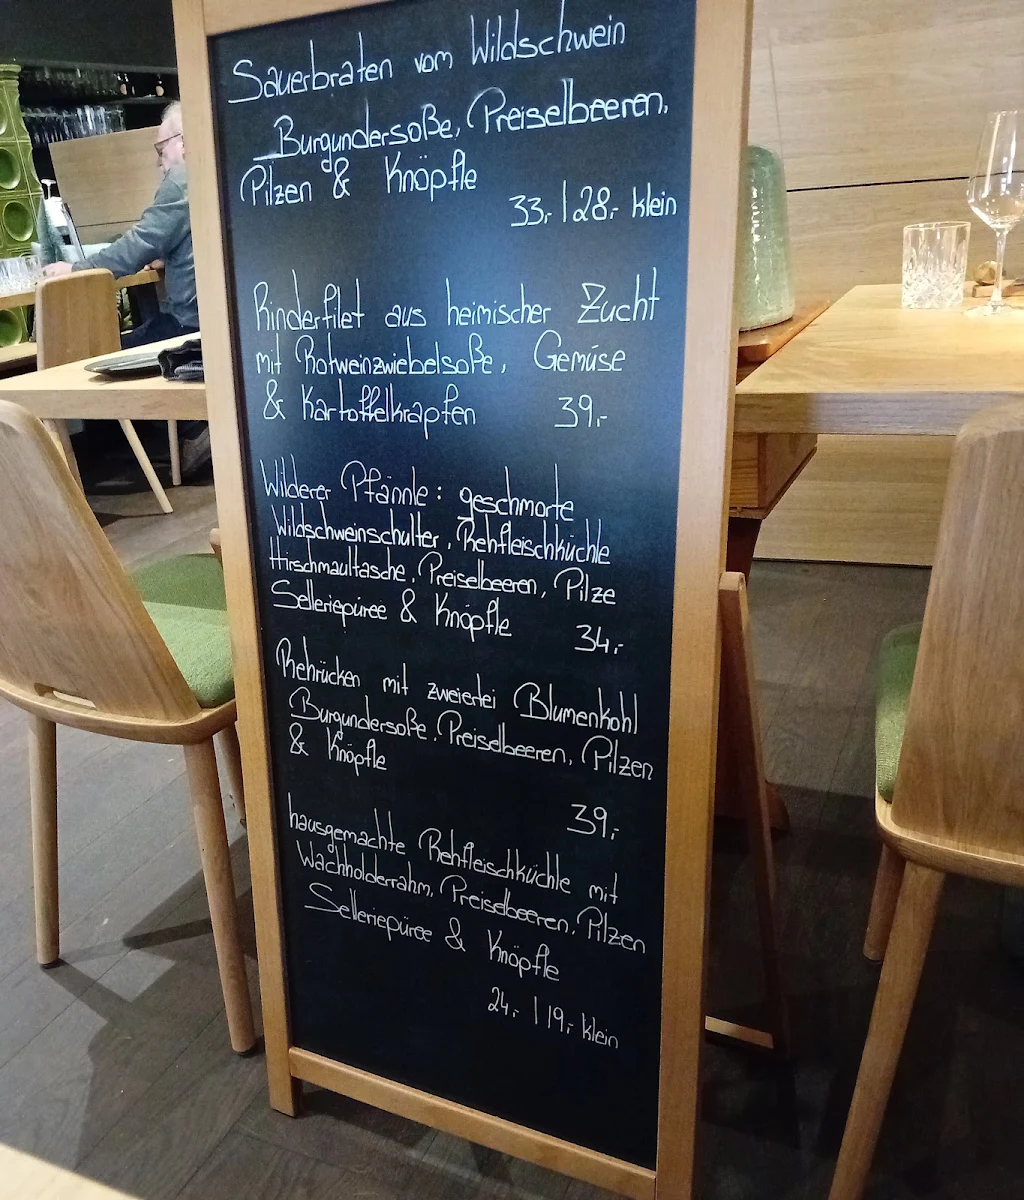 Sauerbraten vom Wildschwein
Burgundersoße, Preiselbeeren,
Pilzen & Knöpfle
33,- | 28,- klein
Rinderfilet aus heimischer Zucht
mit Rotweinzwiebelsoße, Gemüse
& Kartoffelkrapfen 39,-
Wilderer Pfännle: geschmorte
Wildschweinschulter, Rehfleischküchle
Hirschmaultasche, Preiselbeeren, Pilze
Selleriepüree & Knöpfle 34,-
Rehrücken mit zweierlei Blumenkohl
Burgundersoße, Preiselbeeren, Pilzen
& Knöpfle
39,-
hausgemachte Rehfleischküchle mit
Wachholderrahm, Preiselbeeren, Pilzen
Selleriepüree & Knöpfle
24,- | 19,- klein